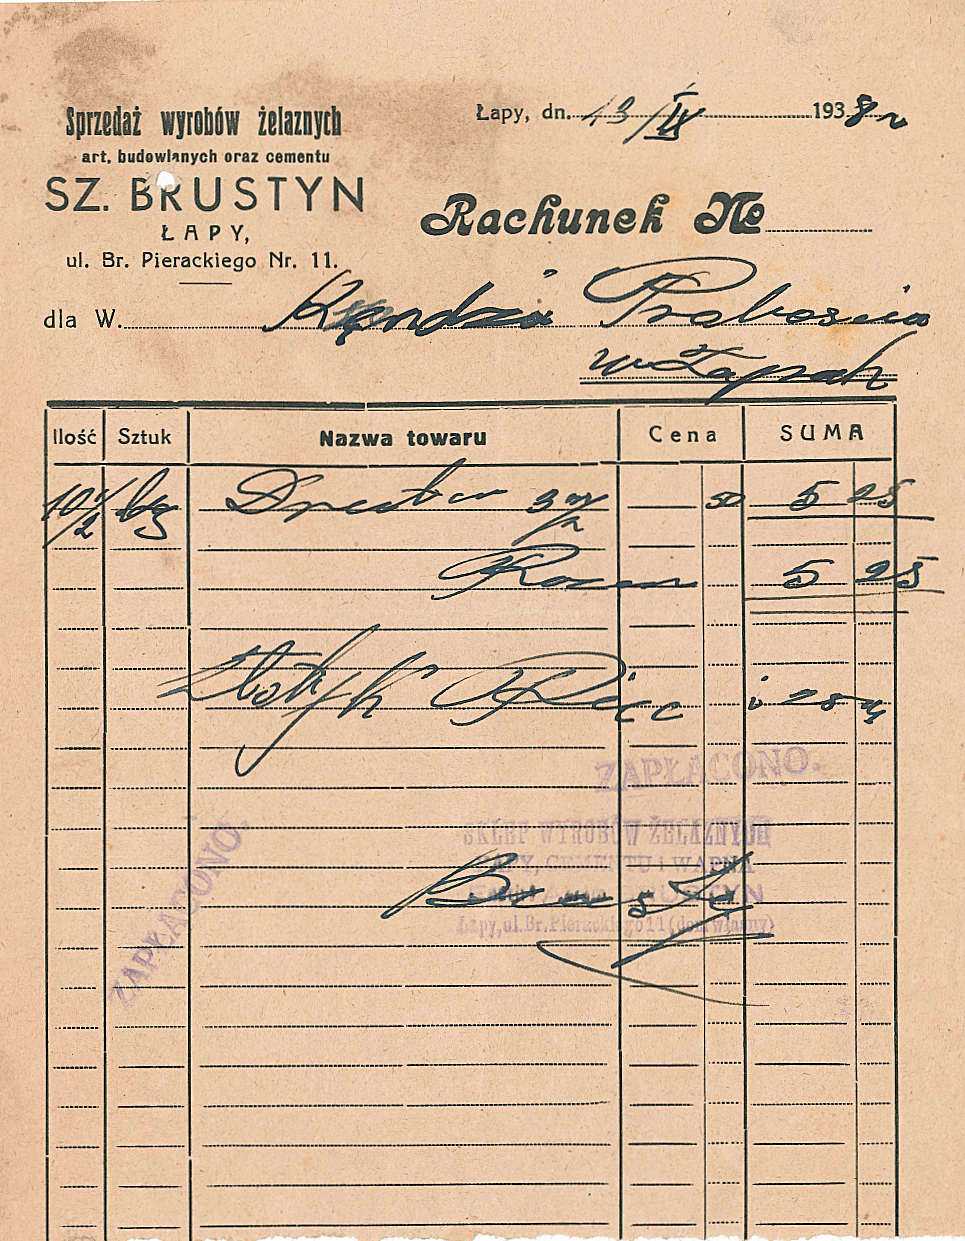 Sprzedaż wyrobów żelaznych
art. budowlanych oraz cementu
SZ. BRUSTYN
ŁAPY,
ul. Br. Pierackiego Nr. 11.
Łapy, dn. 13/IX 1938 r
Rachunek №
dla W. Kędza Proboscza
w Łapach
Ilość Sztuk Nazwa towaru Cena SUMA
10 1/2 kg 3 m/m 50 5 25
Razem 5 25
Złotych Pięć i 25 gr
ZAPŁACONO.
SKLEP WYROBÓW ŻELAZNYCH
CEMENTU i WAPNA
BRUSTYN
Łapy, ul. Br. Pierackiego 11 (dom własny)
ZAPŁACONO.